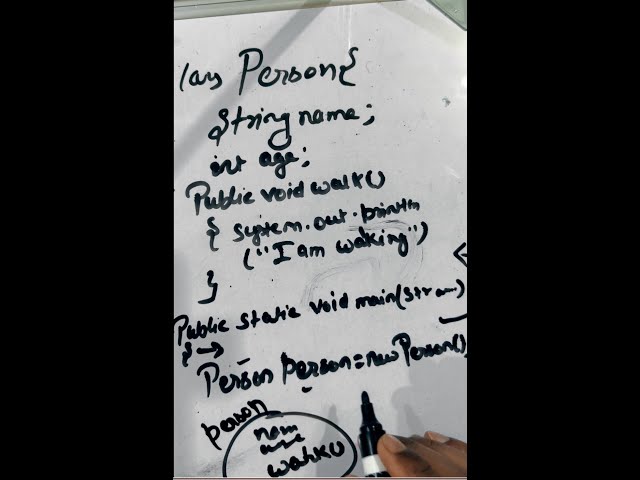 lass Person{
String name;
int age;
Public void walk()
{ system.out.println
("I am waking")
}
Public static void main(Str)
{ →
Person person=new Person();
person
nam
age
walk()